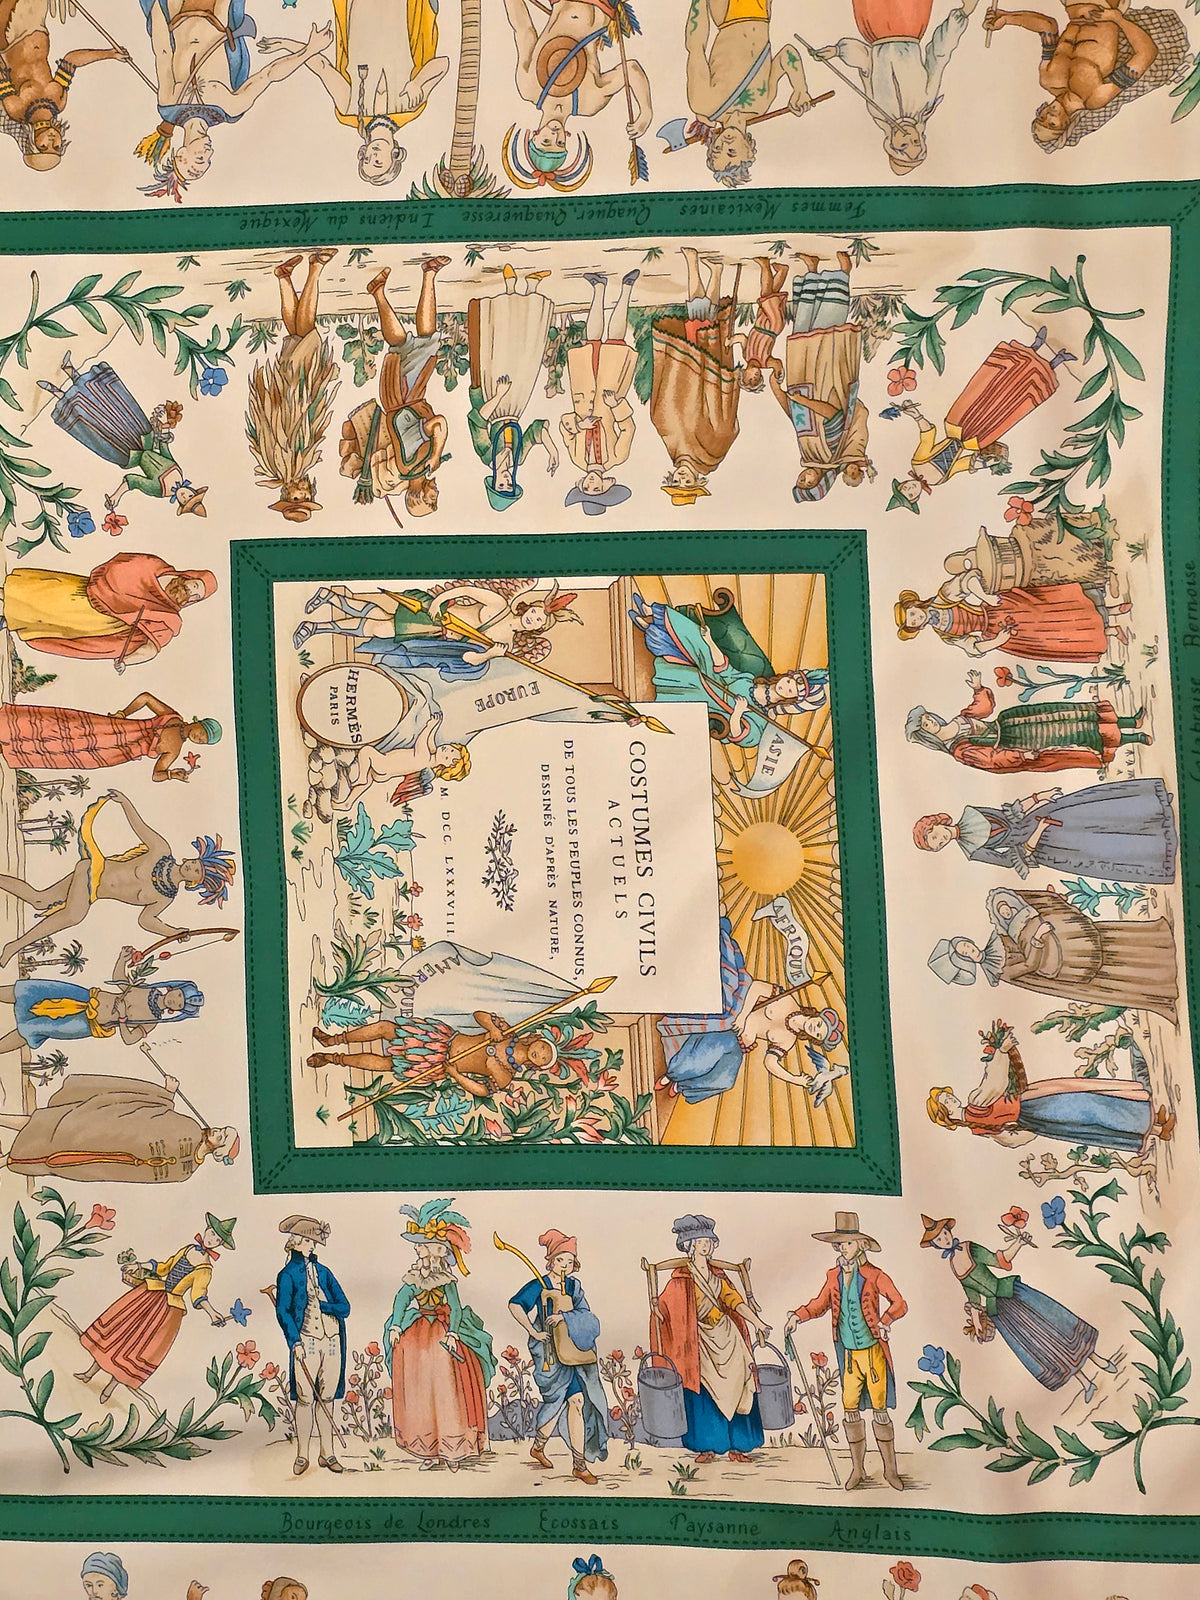 Femmes Mexicaines Quaquer, Quaqueresse Indiens du Mexique
HERMÈS
PARIS
EUROPE
ASIE
AFRIQUE
AMERIQUE
COSTUMES CIVILS
ACTUELS
DE TOUS LES PEUPLES CONNUS,
DESSINÉS D'APRÈS NATURE,
M. DCC. LXXXVIII.
Bernoise
Bourgeois de Londres Ecossais Paysanne Anglais